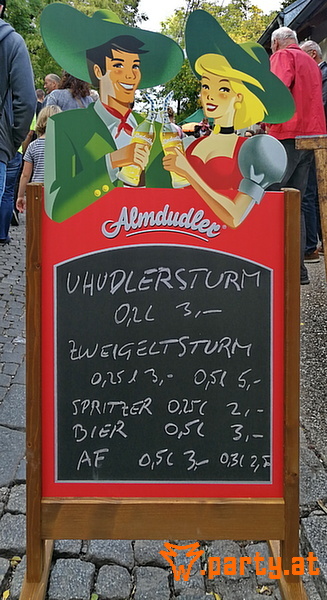 Almdudler®
UHUDLERSTURM
0,2L 3,-
ZWEIGELTSTURM
0,25l 3,- 0,5l 5,-
SPRITZER 0,25l 2,-
BIER 0,5l 3,-
AF 0,5l 3,- 0,3l 2,5
w.party.at